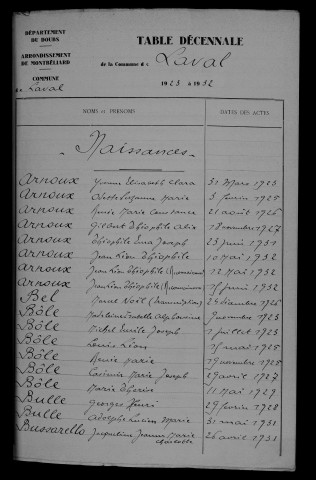 DÉPARTEMENT
DU DOUBS
ARRONDISSEMENT
DE MONTBÉLIARD
COMMUNE
de Laval
TABLE DÉCENNALE
de la Commune de Laval
1923 à 1932
NOMS et PRÉNOMS DATES DES ACTES
Naissances
Arnoux Yvonne Elisabeth Clara 31 Mars 1923
Arnoux Marie 5 février 1925
Arnoux Renée Marie Constance 21 août 1926
Arnoux Gilbert Théophile 18 novembre 1927
Arnoux Théophile Joseph 23 juin 1931
Arnoux Jean Léon Théophile 10 Mai 1932
Arnoux Jean Léon Théophile (Reconnaissance) 12 Mai 1932
Arnoux Jean Léon Théophile (Reconnaissance) juin 1932
Bel Marie Noël (transcription) 25 décembre 1926
Bôle Madeleine 1923
Bôle Michel Emile Joseph 1 juillet 1923
Bôle Louis Léon mai 1925
Bôle Renée Marie 19 novembre 1925
Bôle Casimir Marie Joseph 29 avril 1927
Bôle Marie Thérèse 11 Mai 1929
Bulle Georges Henri 29 février 1928
Bulle Adolphe Lucien Marie 31 mai 1931
Bussarello Jacqueline Jeanne Marie 26 avril 1931